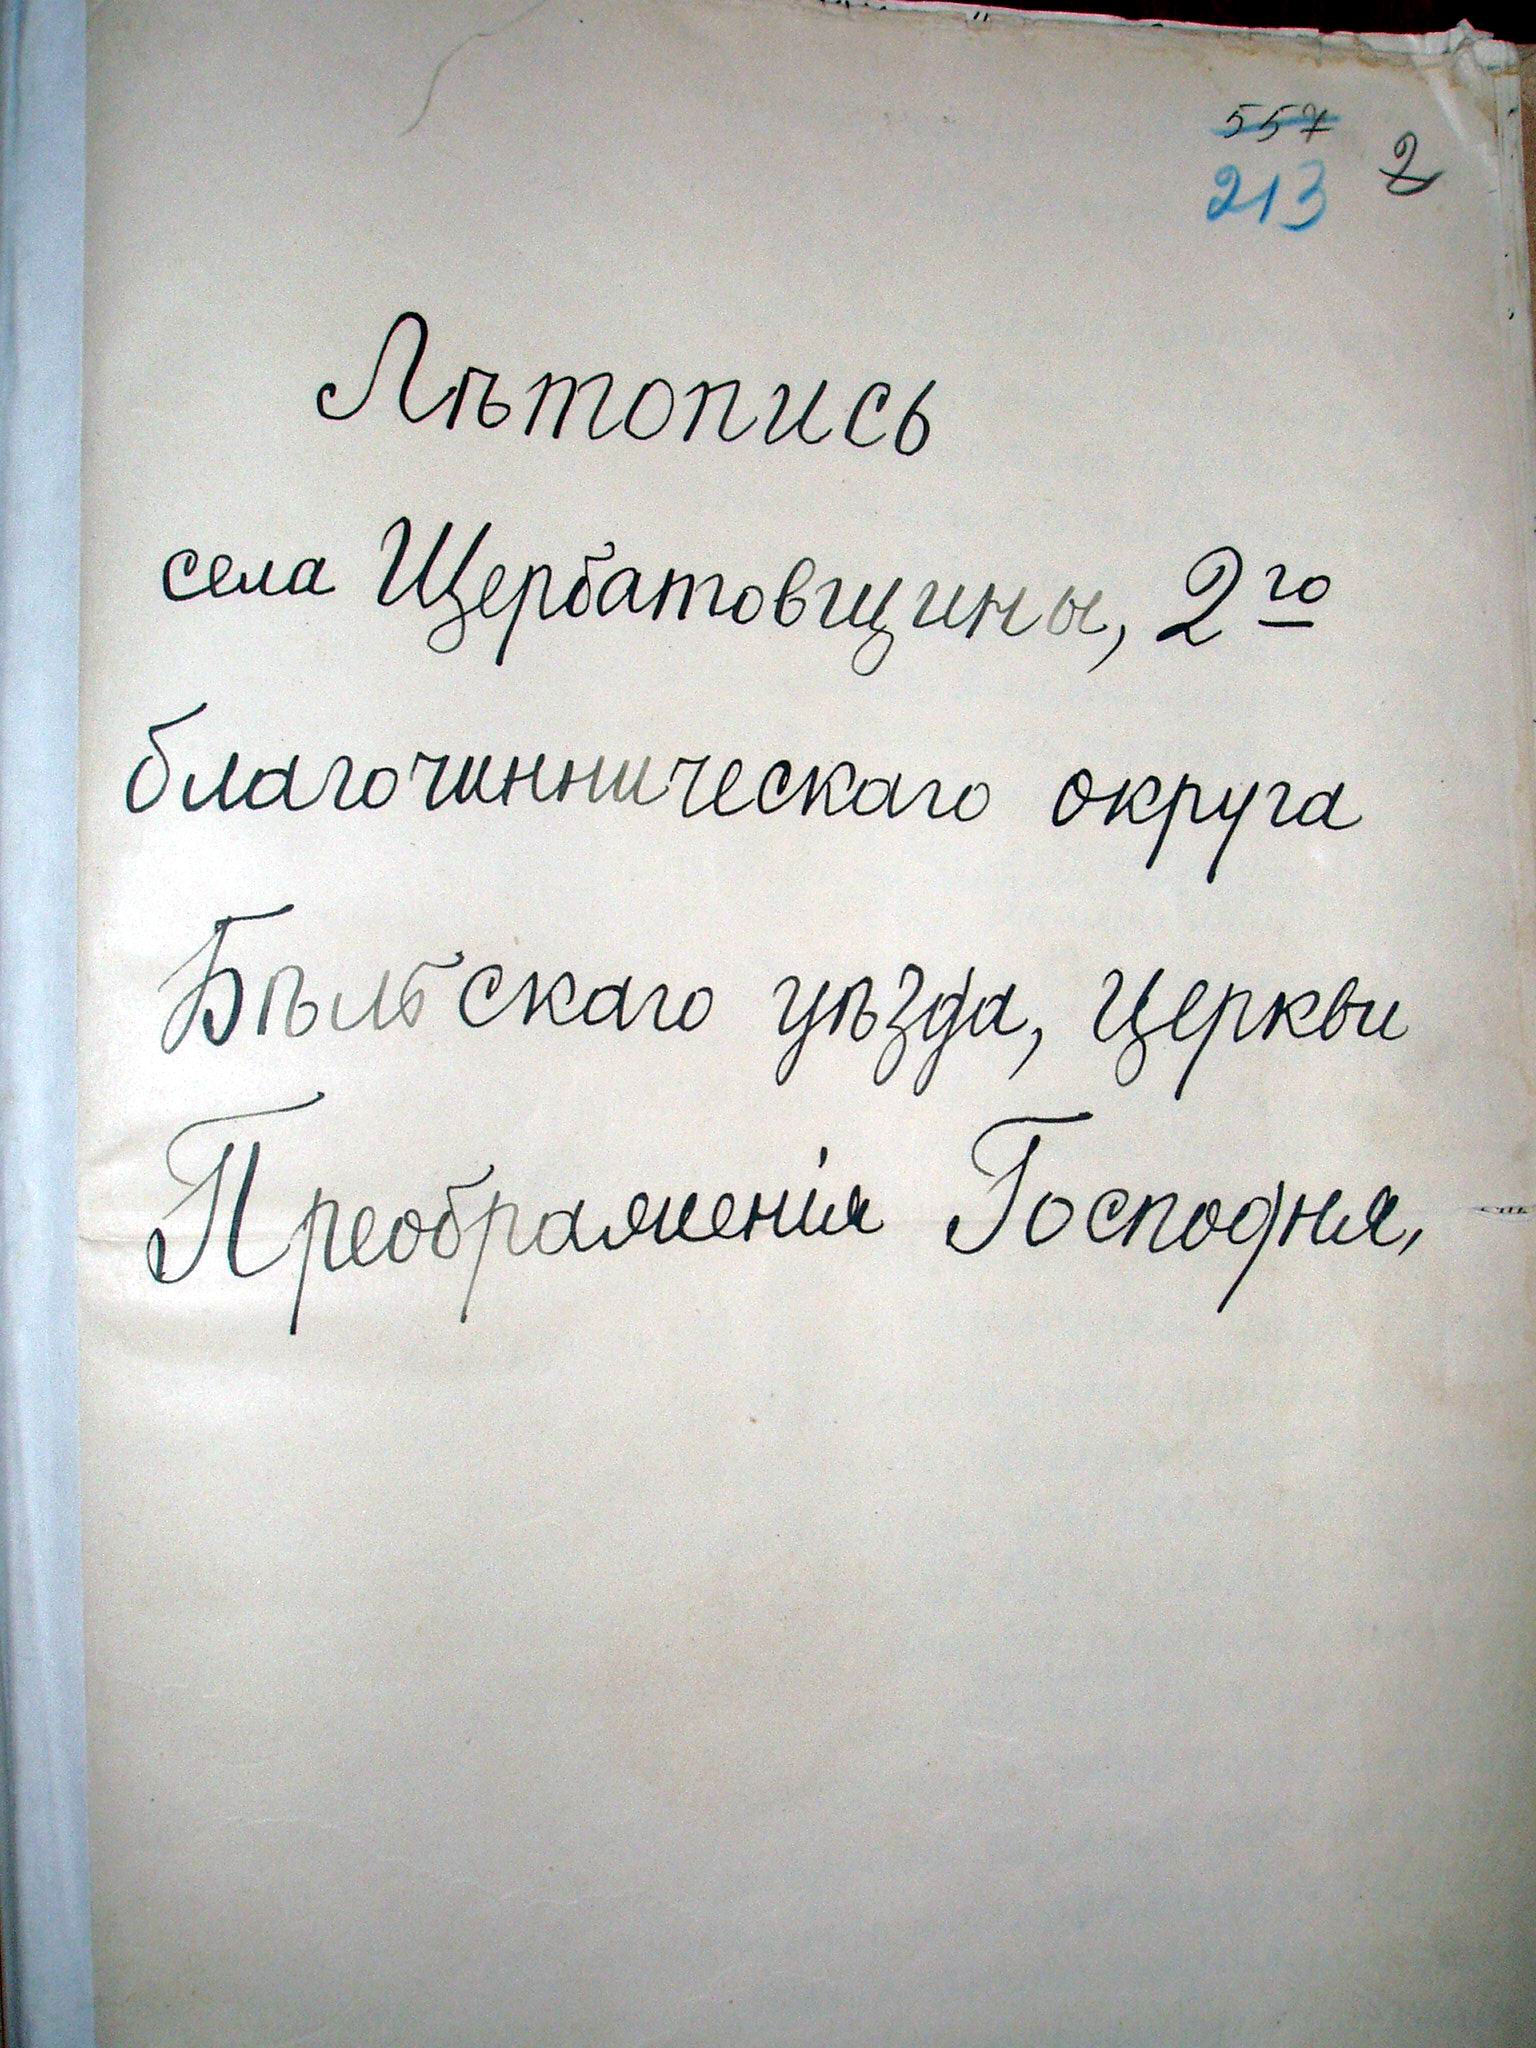 557
213 2
Лѣтопись
села Щербатовщины, 2го
благочинническаго округа
Бѣльскаго уѣзда, церкви
Преображенія Господня,